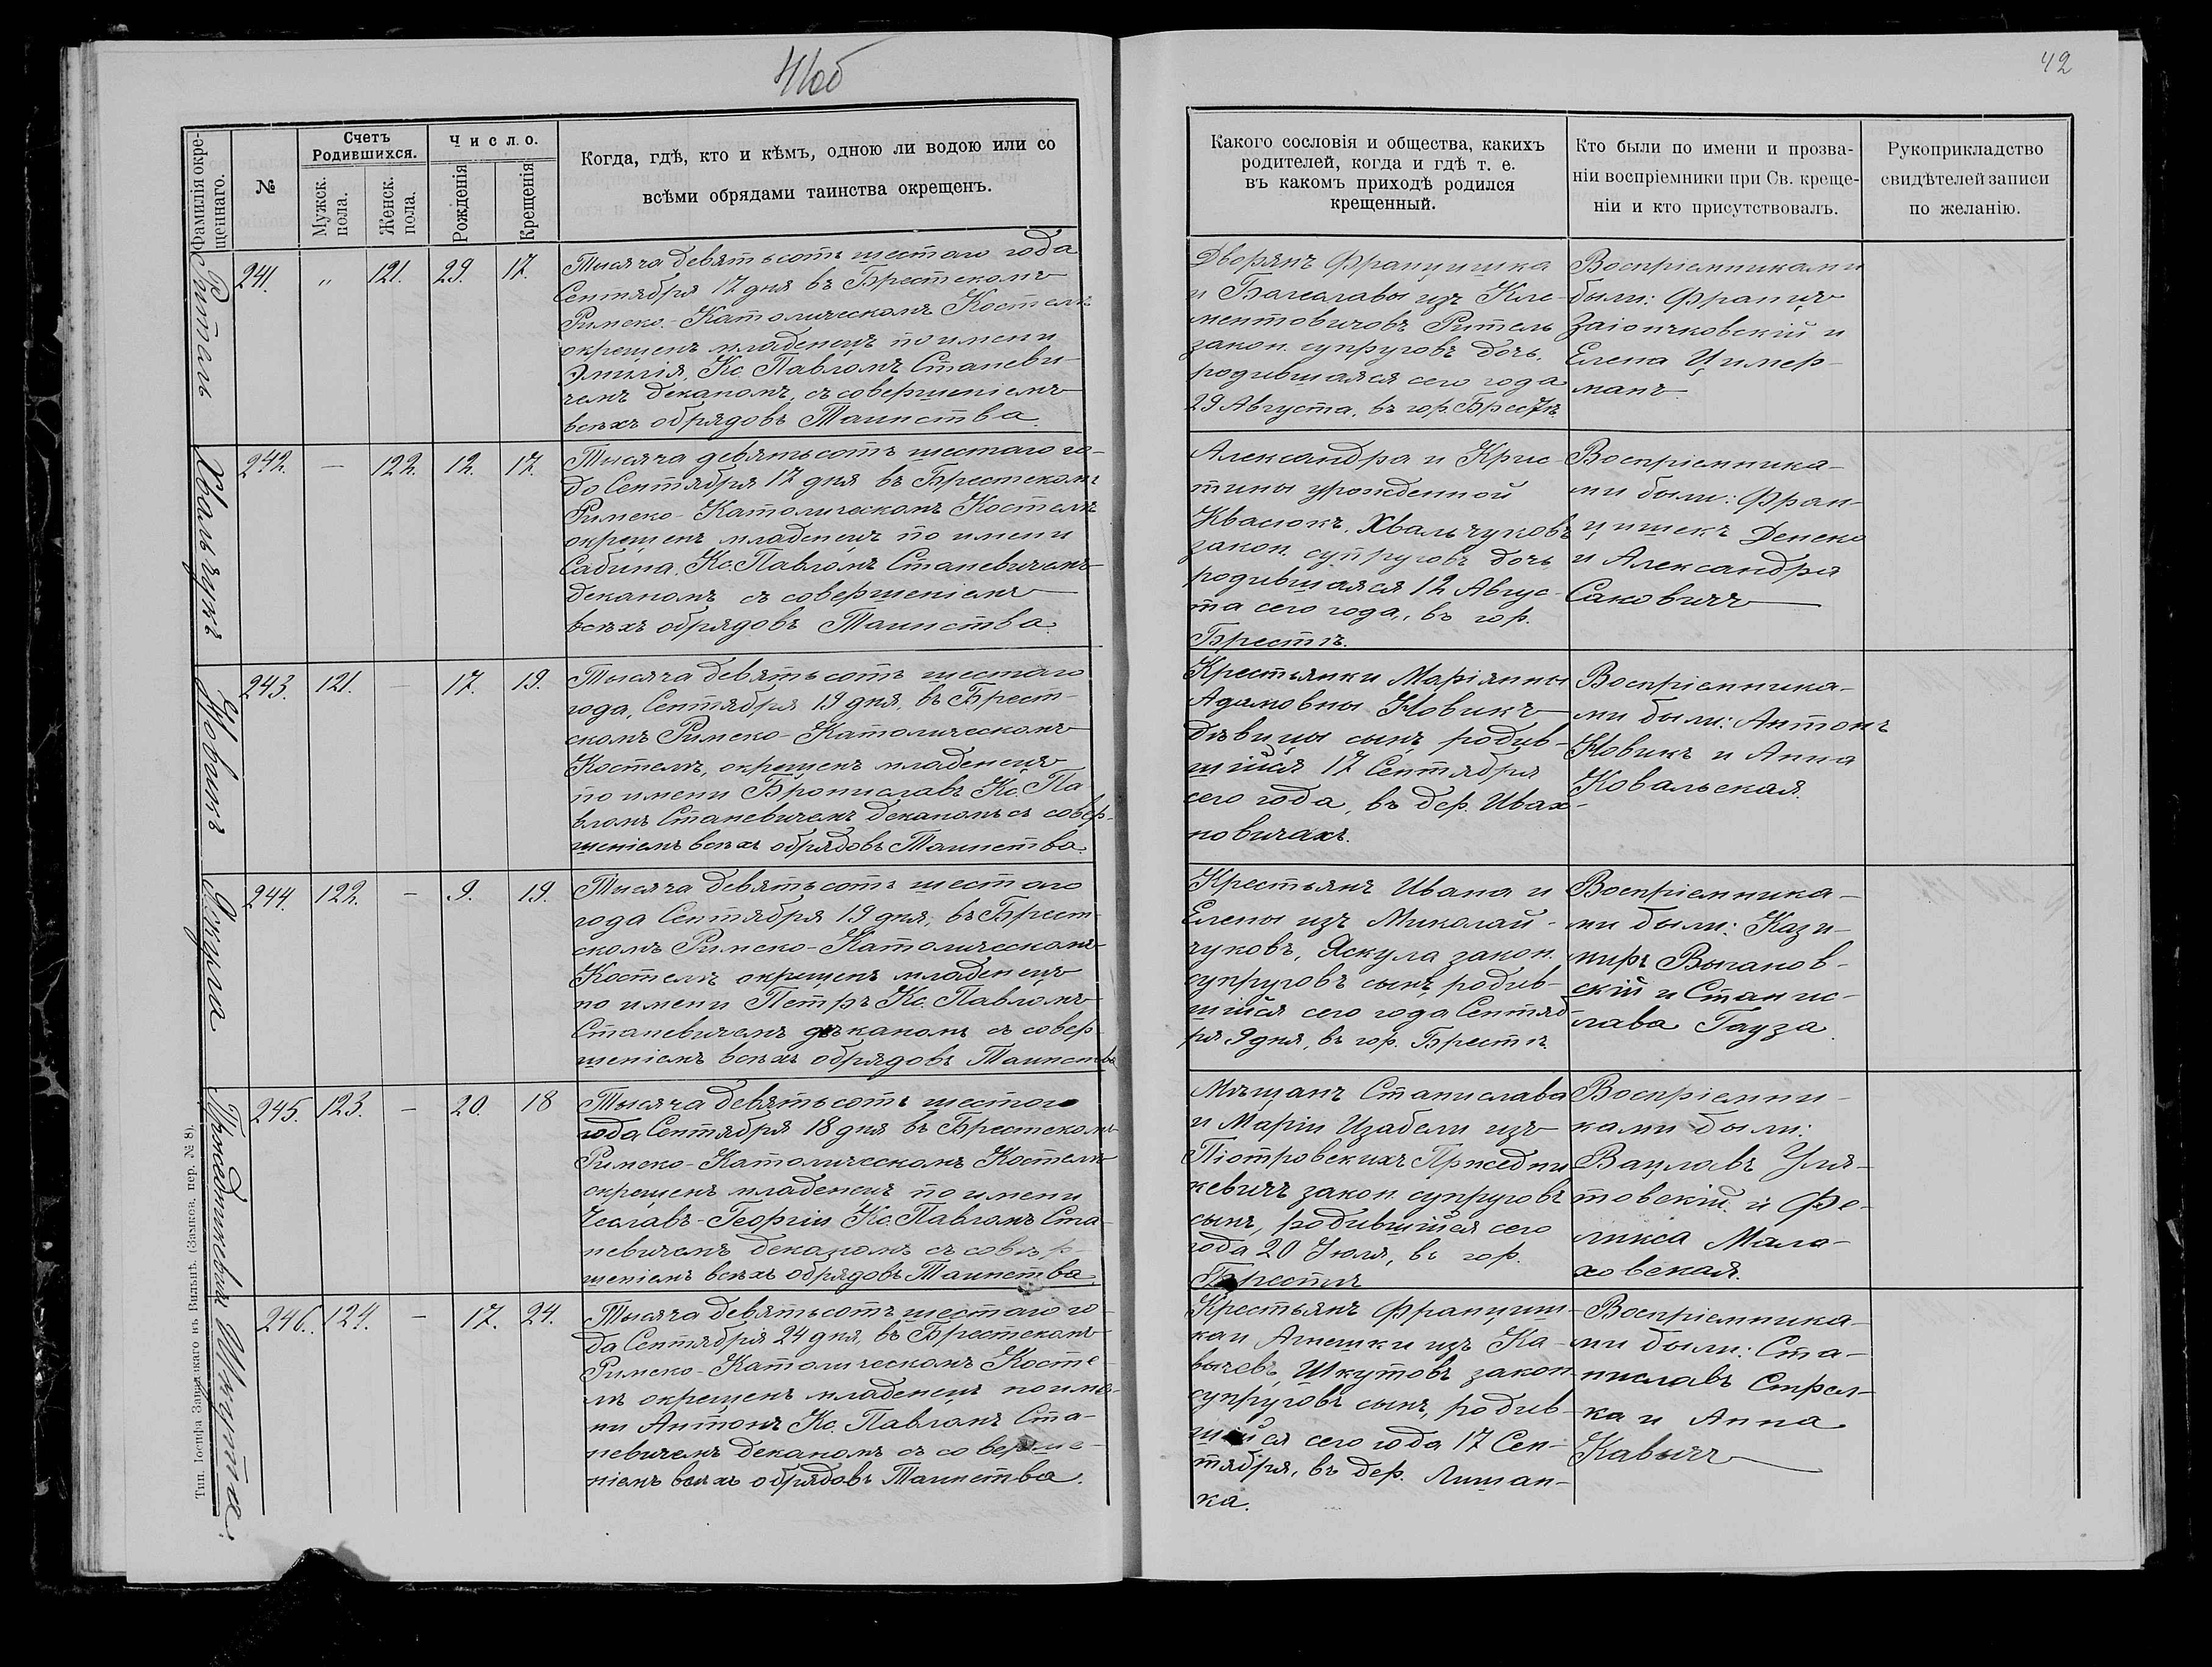 41об
42
Фамилія окре-
щеннаго.
№
Счетъ
Родившихся.
Мужск.
пола.
Женск.
пола.
Число.
Рожденія
Крещенія
Когда, гдѣ, кто и кѣмъ, одною ли водою или со
всѣми обрядами таинства окрещенъ.
Какого сословія и общества, какихъ
родителей, когда и гдѣ т. е.
въ какомъ приходѣ родился
крещенный.
Кто были по имени и прозва-
ніи воспріемники при Св. креще-
ніи и кто присутствовалъ.
Рукоприкладство
свидѣтелей записи
по желанію.
Ритель
241. " 121. 29. 17.
Тысяча девятьсотъ шестаго года
Сентября 17 дня въ Брестскомъ
Римско-Католическомъ Костелѣ
окрещенъ младенецъ по имени
Эмилія, Кс. Павломъ Станеви-
чемъ деканомъ, съ совершеніемъ
всѣхъ обрядовъ Таинства.
Дворянъ Францишка
и Багеславы изъ Кле-
ментовичовъ Ритель
закон. супруговъ дочь,
родившаяся сего года
29 Августа, въ гор. Брестѣ
Воспріемниками
были: Францъ
Заіончковскій и
Елена Цимер-
манъ
Хвальчукъ
242. — 122. 12. 17.
Тысяча девятьсотъ шестаго го-
да Сентября 17 дня въ Брестскомъ
Римско-Католическомъ Костелѣ
окрещенъ младенецъ по имени
Сабина, Кс. Павломъ Станевичемъ
деканомъ съ совершеніемъ
всѣхъ обрядовъ Таинства.
Александра и Крис-
тины урожденной
Квасюкъ, Хвальчуковъ
закон. супруговъ дочь
родившаяся 12 Авгус-
та сего года, въ гор.
Брестѣ.
Воспріемника-
ми были: Фран-
цишекъ Денеко
и Александра
Саковичъ
Новикъ
243. 121. — 17. 19.
Тысяча девятьсотъ шестаго
года, Сентября 19 дня, въ Брест-
скомъ Римско-Католическомъ
Костелѣ, окрещенъ младенецъ
по имени Брониславъ Кс. Па-
вломъ Станевичемъ деканомъ съ совер-
шеніемъ всѣхъ обрядовъ Таинства.
Крестьянки Маріянны
Адамовны Новикъ
дѣвицы сынъ, родив-
шійся 17 Сентября
сего года, въ дер. Ивах-
новичахъ.
Воспріемника-
ми были: Антонъ
Новикъ и Анна
Ковальская.
Яскула
244. 122. — 9. 19.
Тысяча девятьсотъ шестаго
года Сентября 19 дня, въ Брест-
скомъ Римско-Католическомъ
Костелѣ окрещенъ младенецъ
по имени Петръ Кс. Павломъ
Станевичемъ деканомъ съ совер-
шеніемъ всѣхъ обрядовъ Таинства
Крестьянъ Ивана и
Елены изъ Миколай-
чуковъ, Яскула закон.
супруговъ сынъ, родив-
шійся сего года Сентяб-
ря 9 дня, въ гор. Брестѣ.
Воспріемника-
ми были: Кази-
миръ Выганов-
скій и Станис-
лава Гауза.
Пржедпкевичъ
245. 123. — 20. 18
Тысяча девятьсотъ шестого
года Сентября 18 дня въ Брестскомъ
Римско-Католическомъ Костелѣ
окрещенъ младенецъ по имени
Чеславъ-Георгій Кс. Павломъ Ста-
невичемъ деканомъ съ совер-
шеніемъ всѣхъ обрядовъ Таинства.
Мѣщанъ Станислава
и Маріи Изабели изъ
Піотровскихъ Пржедпи-
кевичъ закон. супруговъ
сынъ, родившійся сего
года 20 Іюля, въ гор.
Брестѣ
Воспріемни-
ками были:
Вацлавъ Уля-
товскій и Фе-
ликса Мала-
ховская.
Шкутъ
246. 124. — 17. 24.
Тысяча девятьсотъ шестаго го-
да Сентября 24 дня, въ Брестскомъ
Римско-Католическомъ Косте-
лѣ окрещенъ младенецъ по име-
ни Антонъ Кс. Павломъ Ста-
невичемъ деканомъ съ соверше-
ніемъ всѣхъ обрядовъ Таинства.
Крестьянъ Франциш-
ка и Агнешки изъ Ка-
вычевъ, Шкутовъ закон.
супруговъ сынъ, родив-
шійся сего года 17 Сен-
тября, въ дер. Лишан-
ка.
Воспріемника-
ми были: Ста-
ниславъ Стрел-
ка и Анна
Кавычъ
Тип. Іосифа Завадзкаго въ Вильнѣ. (Замков. пер. № 8).